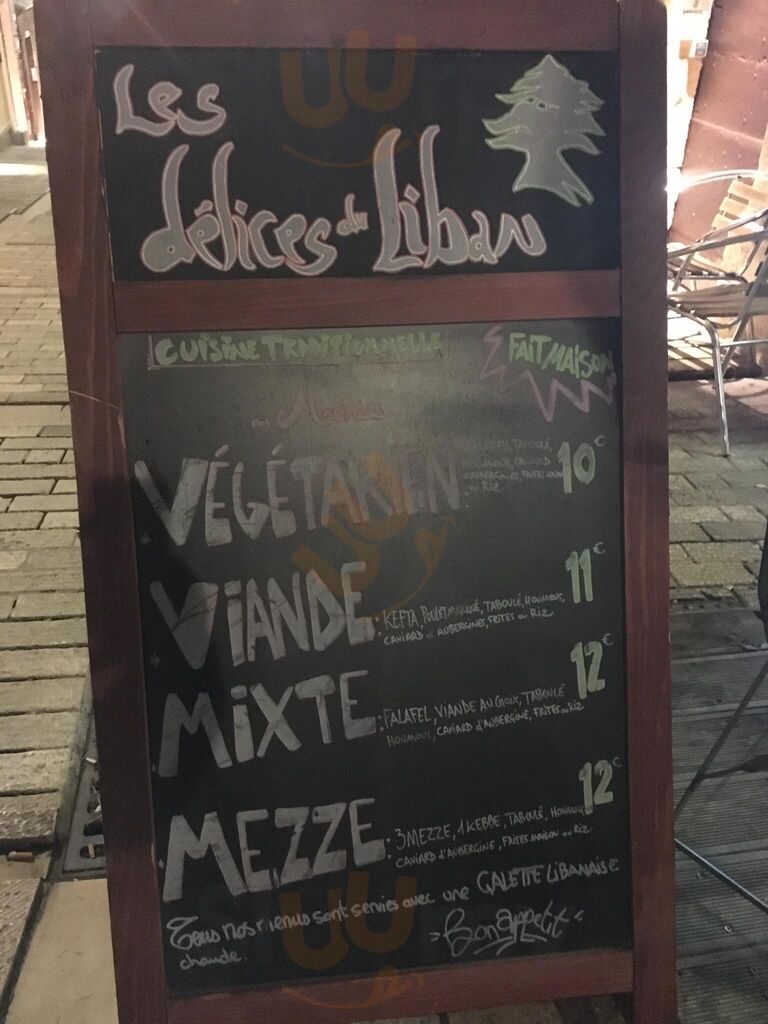 Les
délices du Liban
CUISINE TRADITIONNELLE
FAIT MAISON
nos
VÉGÉTARIEN
TABOULÉ,
HOUMOUS, CAVIARD
d'AUBERGINES, FRITES
ou RIZ
10€
VIANDE : KEFTA, POULET MARINÉ, TABOULÉ, HOUMOUS,
CAVIARD d'AUBERGINES, FRITES ou RIZ
11€
MIXTE : FALAFEL, VIANDE AU CHOIX, TABOULÉ
HOUMOUS, CAVIARD d'AUBERGINE, FRITES ou RIZ
12€
MEZZE : 3 MEZZE, 1 KEBBE, TABOULÉ, HOUMOUS
CAVIARD d'AUBERGINE, FRITES MAISON ou RIZ
12€
Tous nos menus sont servies avec une GALETTE LIBANAISE
chaude.
= Bon appetit =